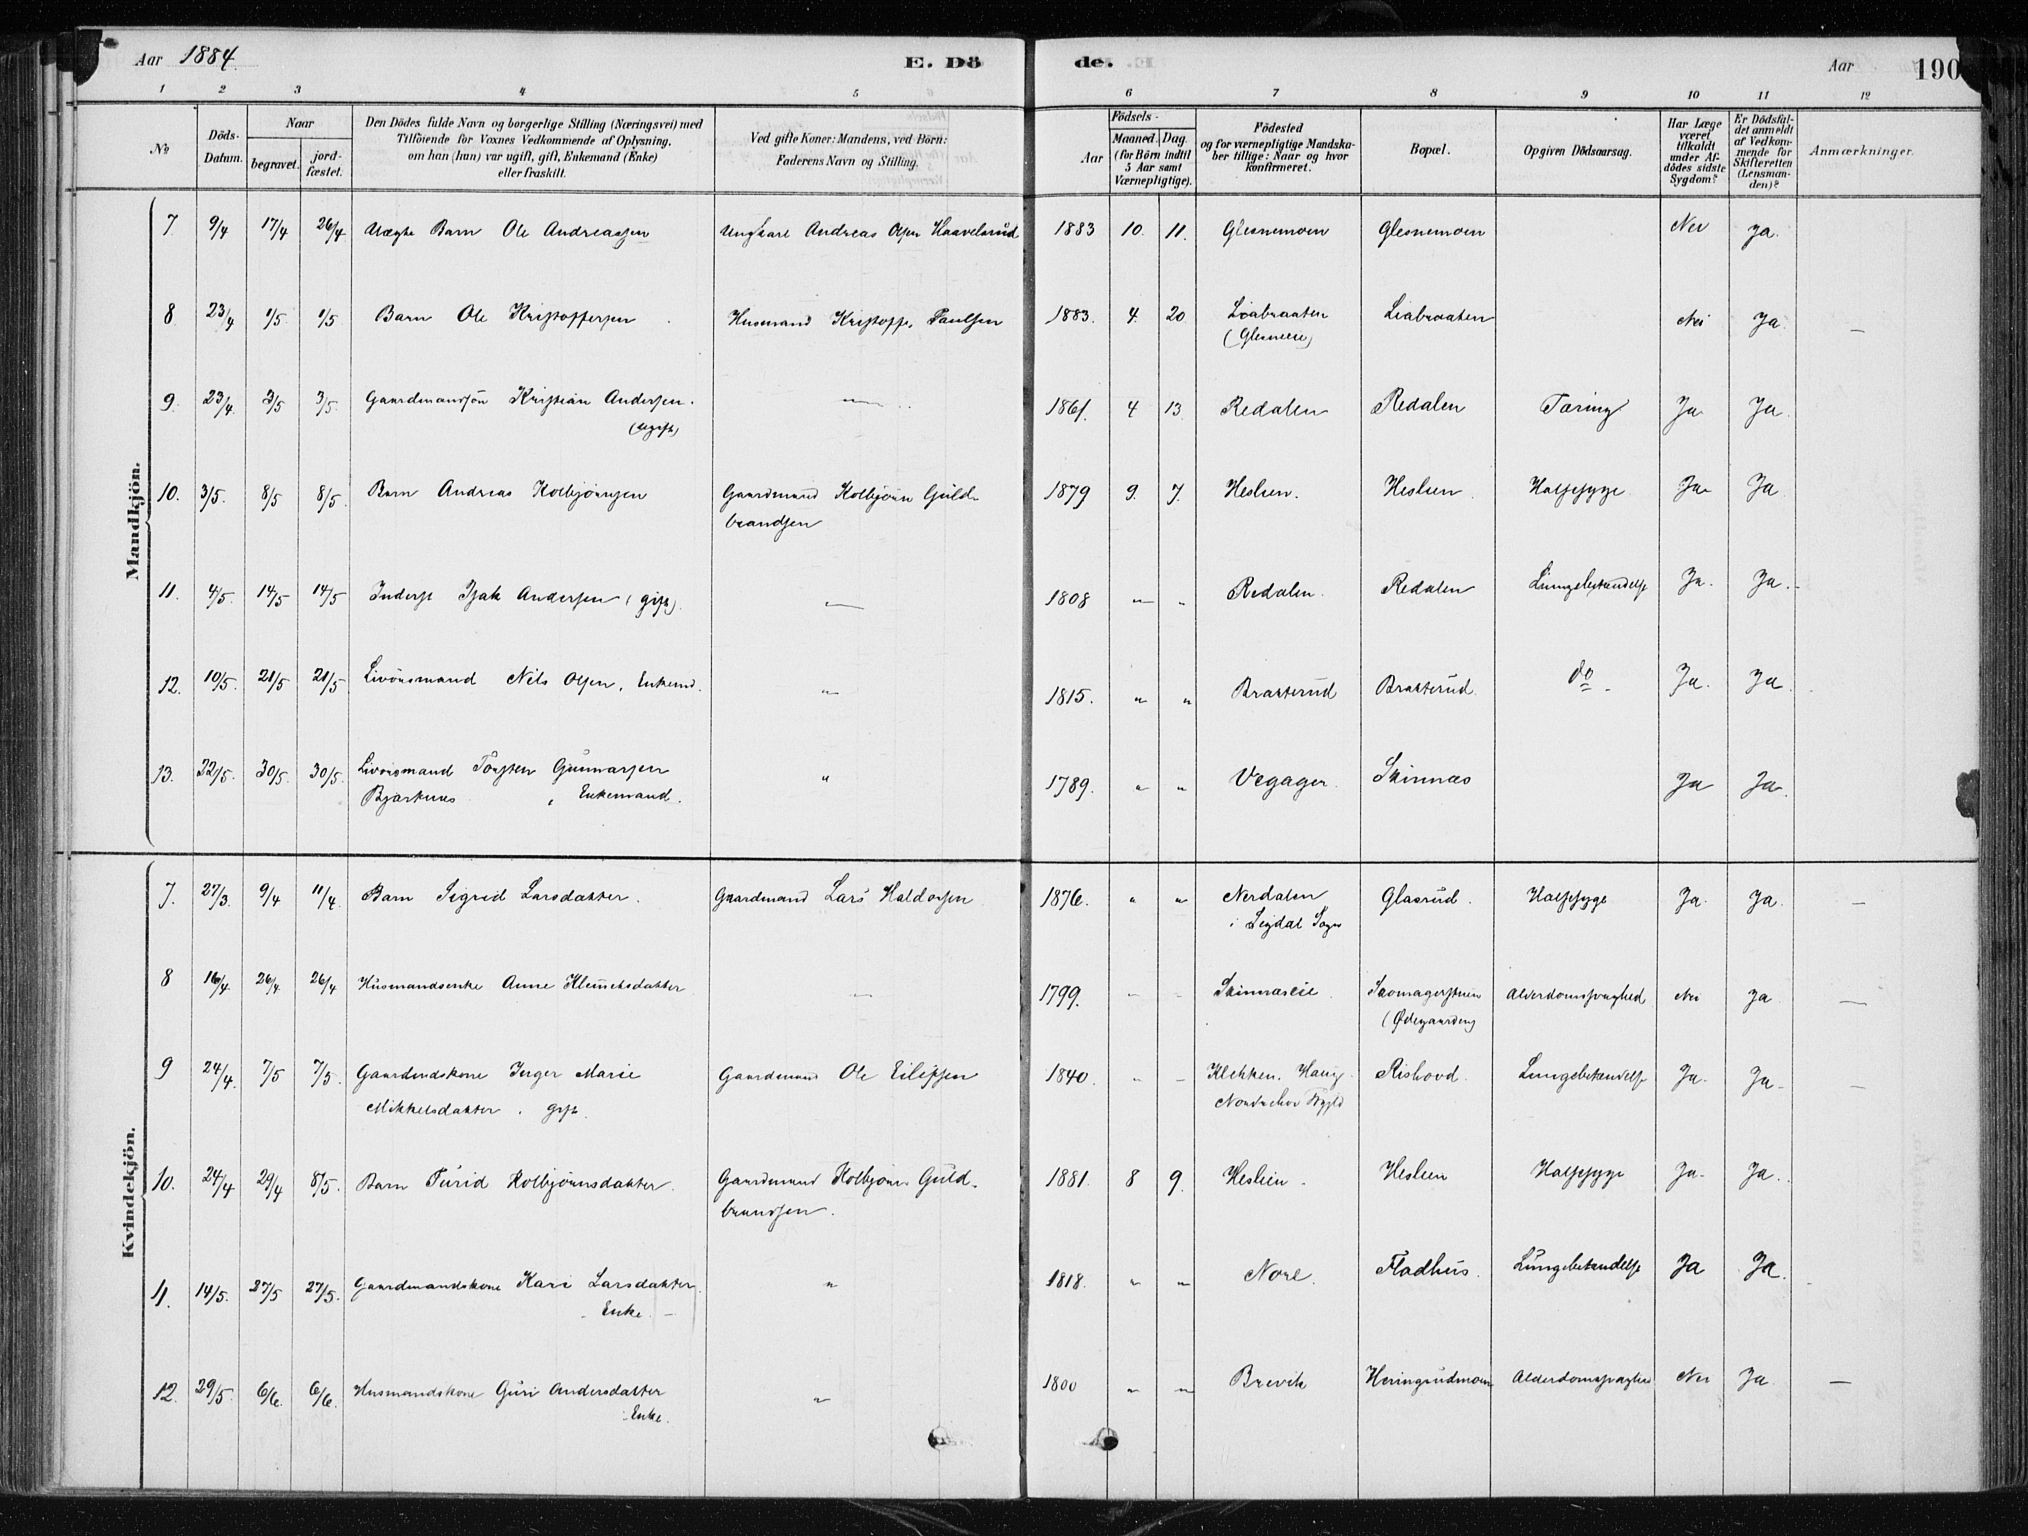 Aar 1884.
E. Dö
de.
Aar
190
1 2 3 4 5 6 7 8 9 10 11 12
No
Döds-
Datum.
Naar
begravet.
jord-
fæstet.
Den Dödes fulde Navn og borgerlige Stilling (Næringsvei) med
Tilföiende for Voxnes Vedkommende af Oplysning,
om han (hun) var ugift, gift, Enkemand (Enke)
eller fraskilt.
Ved gifte Koner: Mandens, ved Börn:
Faderens Navn og Stilling.
Födsels-
Aar
Maaned. Dag.
(for Börn indtil
5 Aar samt
Værnepligtige).
Födested
og for værnepligtige Mandska-
ber tillige: Naar og hvor
konfirmeret.
Bopæl.
Opgiven Dödsaarsag.
Har Læge
været
tilkaldt
under Af-
dödes sidste
Sygdom?
Er Dödsfal-
det anmeldt
af Vedkom-
mende for
Skifteretten
(Lensman-
den)?
Anmærkninger.
Mandkjön.
7. 9/4 17/4 26/4 Uægte Barn Ole Andreassen Ungkarl Andreas Olsen Haavelsrud 1883 10. 11. Glesnemoen Glesnemoen Nei Ja.
8 23/4 1/5 1/5 Barn Ole Kristoffersen Husmand Kristoff. Paulsen 1883. 4. 20 Liabraaten Liabraaten Nei Ja. —
9. 23/4. 3/5 3/5. Gaardmandsön Kristian Andersen. — 1861. 4 13 Redalen Redalen Tæring Ja Ja.
(ugift)
10. 3/5. 8/5 8/5. Barn Andreas Kolbjörnsen Gaardmand Kolbjörn Guld- 1879 9. 7. Heslien. Heslien. Halssyge Ja Ja
brandsen
11. 4/5. 14/5 14/5 Inderst Isak Andersen (gift). — 1808 " " Redalen. Redalen Lungebetændelse Ja. Ja.
12. 10/5. 21/5 21/5 Livörsmand Nils Olsen, Enkemd. " 1815. " " Bratterud Bratterud. do Ja. Ja
13. 22/5. 30/5. 30/5. Livörsmand Torsten Gunnarsen " 1789. " " Vegager. Skinnæs Ja Ja.
Bjørknes, Enkemand.
Kvindekjön.
7. 27/3. 9/4 11/4 Barn Sigrid Larsdatter. Gaardmand Lars Haldorsen 1876. " " Nerdalen Glasrud. Halssyge Ja. Ja. —
i Sigdal Sogn
8 16/4. 26/4 26/4 Husmandsenke Anne Klemetsdatter — 1799. " " Skinnæseie Alderdomssvaghed Nei Ja —
(Ødegaarden)
9 24/4. 7/5 7/5. Gaardmdskone Inger Marie Gaardmand Ole Eilefsen 1840. " — Klekken, Haug Rishovd. Lungebetændelse Ja. Ja. —
Mikkelsdatter, gift.
10. 24/4 29/4 8/5. Barn Turid Kolbjörnsdatter. Gaardmand Kolbjörn Guld- 1881. 8 9. Heslien. Heslien Halssyge Ja. Ja.
brandsen.
11. 14/5. 27/5 27/5. Gaardmandskone Kari Larsdatter. " 1818. " " Nore. Fladhus. Lungebetændelse Ja Ja.
Enke. —
12. 29/5. 6/6. 6/6. Husmandskone Guri Andersdatter " 1800 " " Brevik Heringrudmoen Alderdomssvaghed Nei Ja. —
Enke.